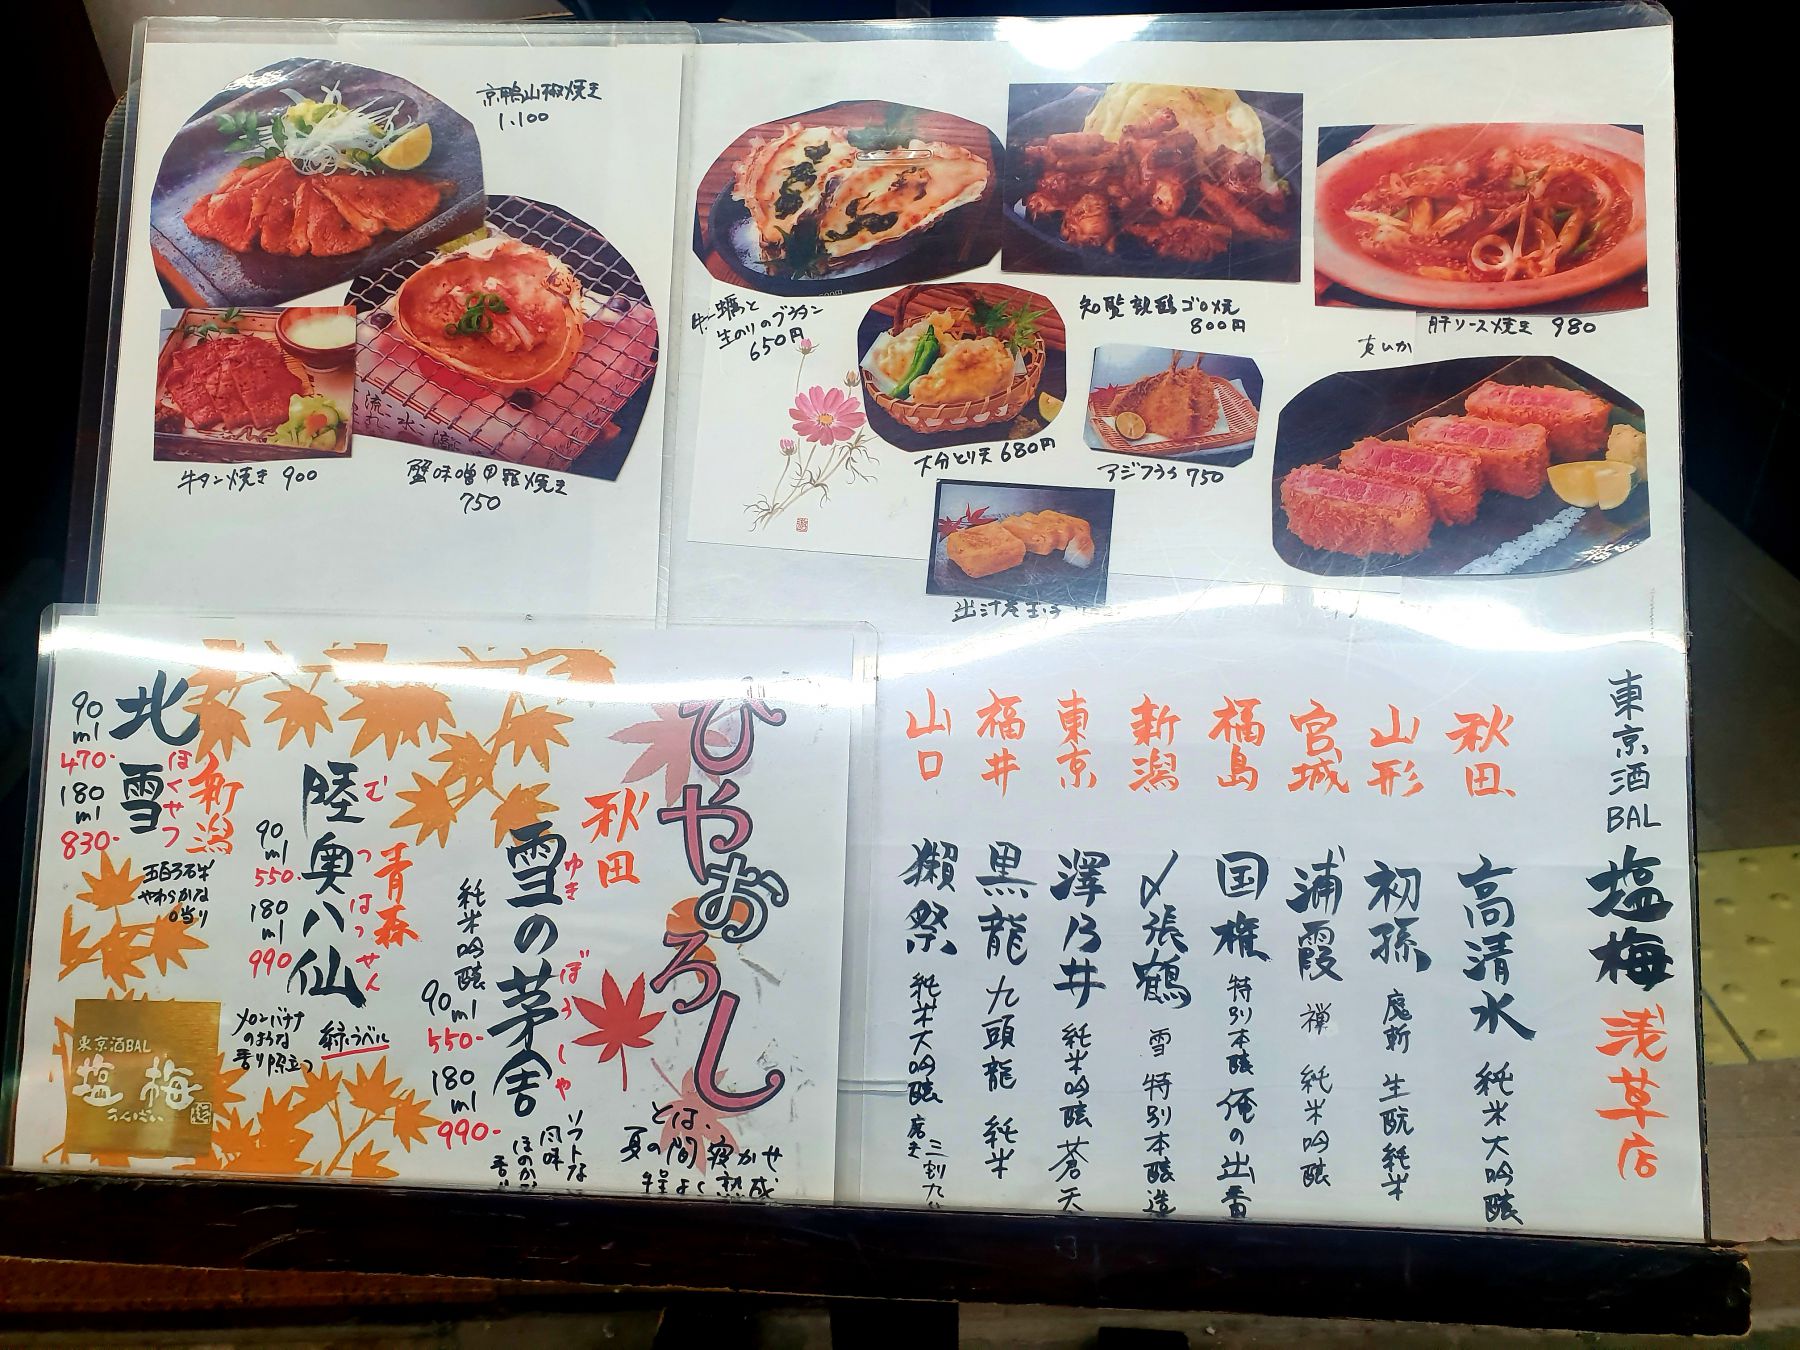 京鴨山椒焼き
1.100
牛タン焼き 900
蟹味噌甲羅焼き
750
牡蠣と
生のりのグラタン
650円
知覧親鶏ゴロ焼
800円
真いか
肝ソース焼き 980
大分とり天 680円
アジフライ 750
出汁巻玉子
ひやおろし
とは、
夏の間寝かせ
程よく熟成
秋田
雪の茅舎
ゆき ぼうしゃ
純米吟醸
90ml
550-
180ml
990-
ソフトな
風味
ほのかな
香り
青森
陸奥八仙
むつはっせん
90ml
550-
180ml
990
緑ラベル
メロンバナナ
のような
香り際立つ
新潟
北雪
ほくせつ
90ml
470-
180ml
830-
五百万石米
やわらかな
口当り
東京酒BAL
塩梅
あんばい
東京酒BAL 塩梅 浅草店
秋田 高清水 純米大吟醸
山形 初孫 魔斬 生酛純米
宮城 浦霞 禅 純米吟醸
福島 国権 特別本醸 俺の出番
新潟 〆張鶴 雪 特別本醸造
東京 澤乃井 純米吟醸 蒼天
福井 黒龍 九頭龍 純米
山口 獺祭 純米大吟醸 磨き 三割九